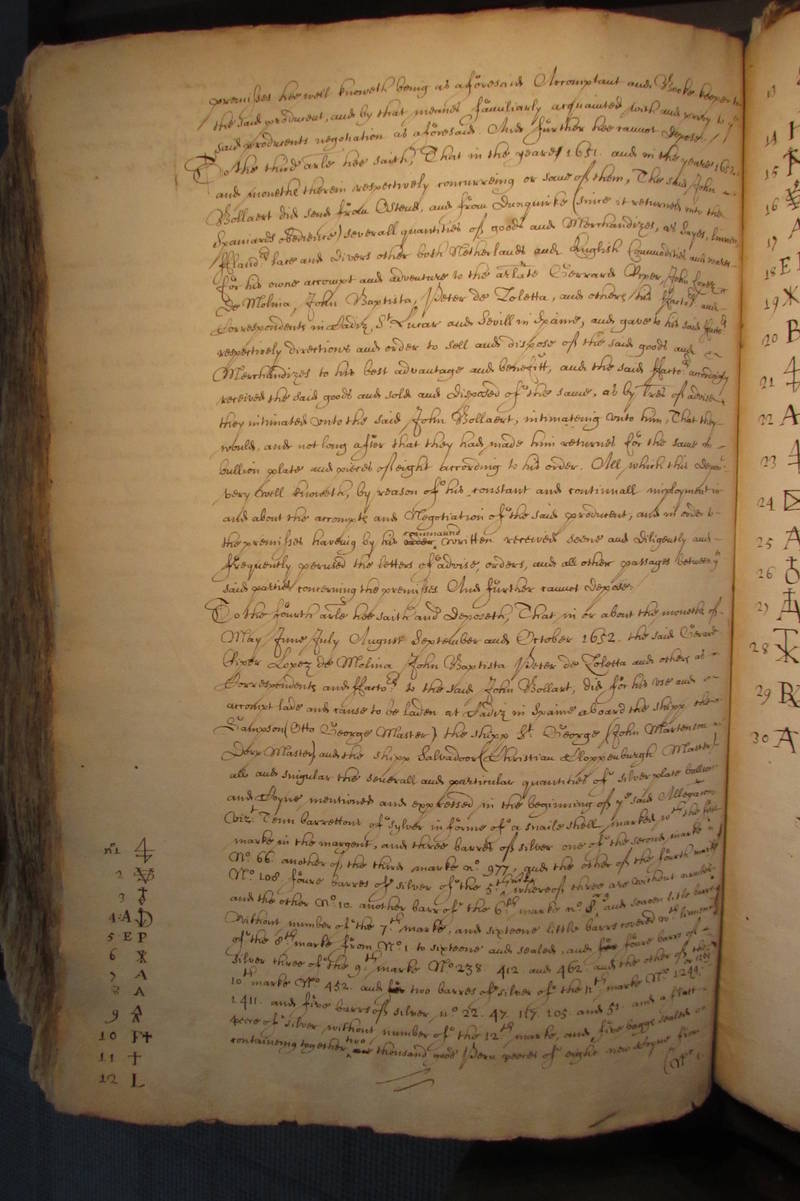 premisses hee well knoweth being as aforesaid Accomptant and Booke keeper to
the said producent, and by that meanes familiarly acquainted with and privy to
said producents negotiation as aforesaid. And further hee cannot depose./
To the third arle hee saith, That in the yeare 1651. and in the yeare 1652.
and moneths therein respectively concurreing or some of them, The said John
Bollaert did send from Ostend, and from Dunquirke (since it returned into the
Spaniards obedience) severall quantities of goods and Merchandizes, as Sayes, linnen,
ffland lace and divers other both Netherlands and English Commodities and wares
for his owne accompt and adventure to the arlate Gerrard Piper John Lopez
De Molina, John Baptista, Peter de Zoletta, and others his ffactors and
Correspondents in Cadiz, St Lucar and Sevill in Spaine, and gave to his said ffactors
respectively directions and order to sell and dispose of the said goods and
Merchandizes to his best advantage and benefitt, and the said ffactors accordingly
received the said goods and sold and disposed of the same, as by lres of advise
they intimated unto the said John Bollaert, intimateing unto him, That they
would, and not long after that they had made him returnes for the same in
bullion plate and pieces of eight according to his order. All which this depot
very well knoweth, by reason of his constant and continuall imployment in
and about the accompts and Negotiation of the said producent, and in order to
the premisses haveing by his command written received seene and diligently and
frequently perused the letters of advise, orders, and all other passages betweene ye
said parties concerning the premisses And further cannot depose.
To the fourth arle hee saith and deposeth, That in or about the moneths of
May June July August September and October 1652. the said Gerard
Piper Lopez de Molina John Baptista Peter de Zoletta and others as
Correspondents and ffactors to the said John Bollart, did for his use and
accompt lade and cause to be laden at Cadiz in Spaine aboard the shipp the
Sampson (Otto George Master) the shipp St. George (John Martenson
Dorp Master) and the shipp Salvador (Christian Cloppenburgh Master)
all and singular the severall and particular quantities of silver plate bullion
and Coyne mentioned and expressed in the beginning of ye said Allegation
vizt Tenn barrettons of sylver in forme of a snaile shell, marked wth the first
marke in the margent, and three barres of silver one of the second marke
No. 66 another of the third marke no. 977. and the other of the fourth marke
No. 108. foure barres of silver of the 5th marke whereof three are without number
and the other No. 10. another barr of the 6th marke no. 8. and seaven little barres
without number of the 7th marke, and sixteene little barres covered wth linnen
of the 8th marke from No. 1 to sixteene and sealed, and foure barrs of
silver three of the 9th marke No. 238. 412 and 462. and the other of the
10th marke No. 452. and two barres of silver of the 11th marke No. 1249.
1411. and five barrs of silver, no. 22. 47. 167. 105 and 51. and a flatt
peece of silver without number of the 12th marke, and five baggs sealed
containeing together two thousand good Peru peeces of eight new Coyne from
(No. 1
no. 1
2
3
4 A
5 E P
6
7 A
8 A
9
10
11 †
12 L
13
14
15
16
17
18 E
19
20 B
21
22 A
23
24
25 A
26
27
28
29 R
30 A